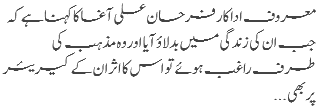 معروف اداکار فرحان علی آغا کا کہنا ہے کہ
جب ان کی زندگی میں بدلاؤ آیا اور وہ مذہب کی
طرف راغب ہوئے تو اس کا اثر ان کے کیریئر
پر بھی ...